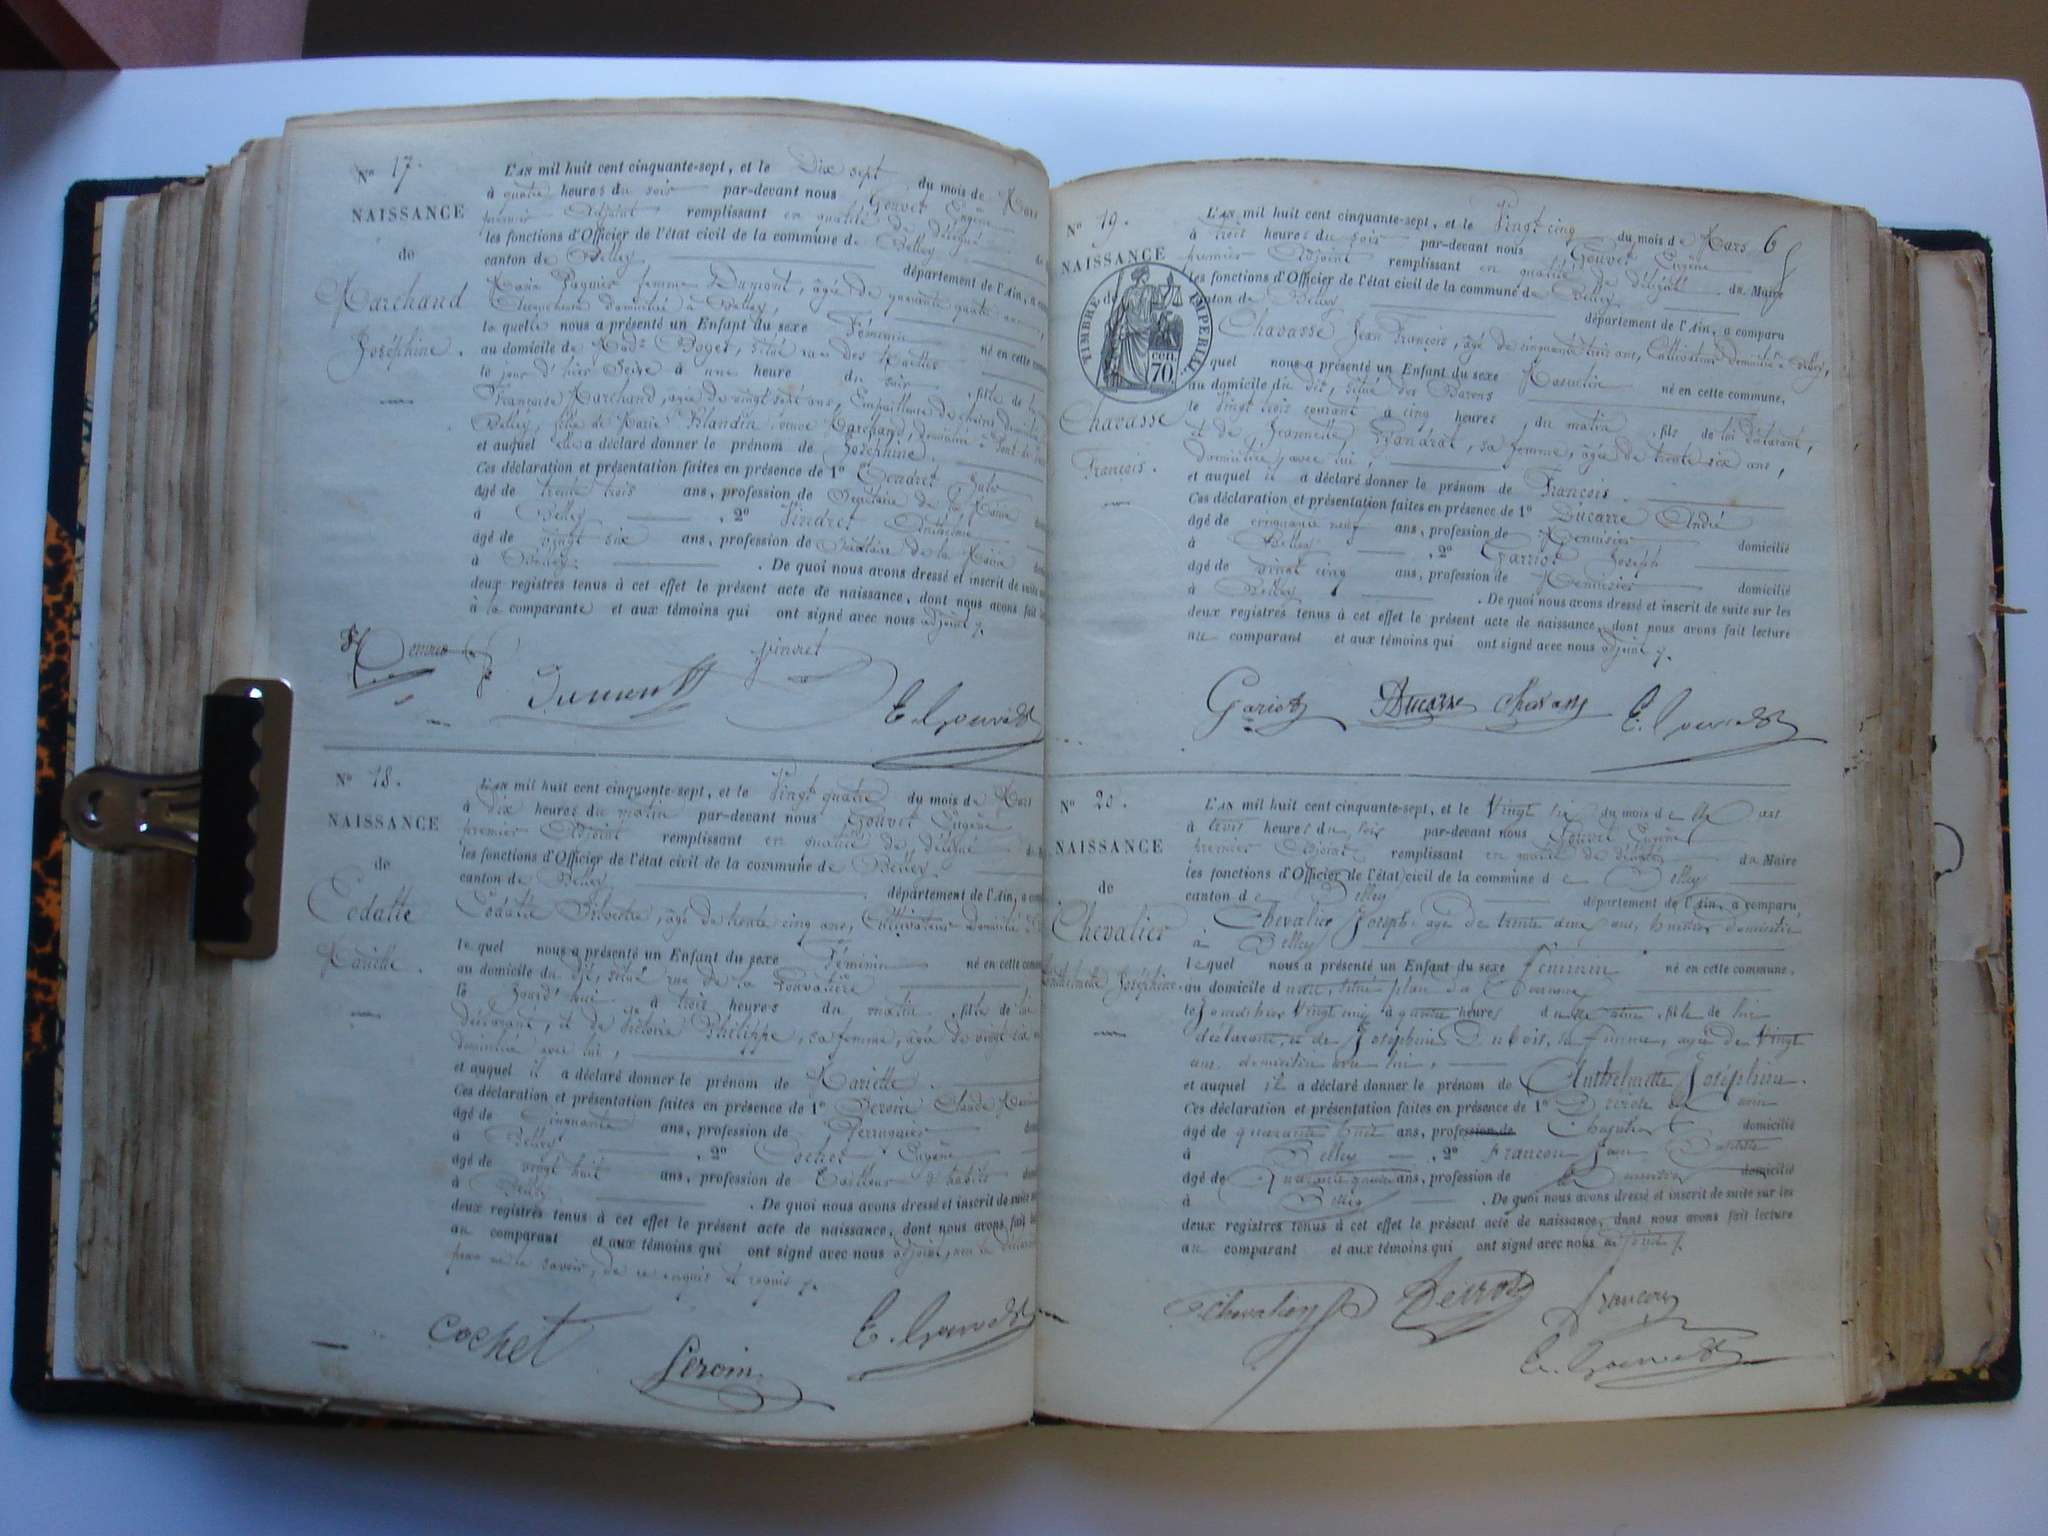 Nº 17.
NAISSANCE
de
Marchand
Joséphine.
L'AN mil huit cent cinquante-sept, et le Dix sept du mois de Mars
à quatre heures du soir par-devant nous Gouvet Eugène
premier Adjoint remplissant en qualité de délégué
les fonctions d'Officier de l'état civil de la commune de Belley
canton de Belley département de l'Ain, a
Marie femme Dumont, âgée de quarante quatre ans,
domiciliée à Belley,
la quelle nous a présenté un Enfant du sexe Féminin né en cette
au domicile de Boyer, situé rue des
le jour d'hier Seize à une heure du soir, fille de
Françoise Marchand, âgée de vingt sept ans,
Belley, fille de Marie Blandin veuve Marchand, domiciliée à Pont-de-
et auquel elle a déclaré donner le prénom de Joséphine.
Ces déclaration et présentation faites en présence de 1º
âgé de trente trois ans, profession de Secrétaire de la Mairie
à Belley, 2º Vindret Anthelme
âgé de vingt six ans, profession de Secrétaire de la Mairie
à Belley. De quoi nous avons dressé et inscrit de suite
deux registres tenus à cet effet le présent acte de naissance, dont nous avons fait
à la comparante et aux témoins qui ont signé avec nous adjoint
Dumont
vindret
E. Gouvet
Nº 18.
NAISSANCE
de
Codatte
Mariette.
L'AN mil huit cent cinquante-sept, et le Vingt quatre du mois de Mars
à dix heures du matin par-devant nous Gouvet Eugène
premier Adjoint remplissant en qualité de délégué
les fonctions d'Officier de l'état civil de la commune de Belley
canton de Belley département de l'Ain, a
Codatte Silvestre, âgé de trente cinq ans, Cultivateur domicilié à
le quel nous a présenté un Enfant du sexe Féminin né en cette
au domicile du dit, situé rue de la
le Jourd'hui à trois heures du matin, fille de lui
déclarant, et de Victoire Philippe, sa femme, âgée de vingt six
domiciliée avec lui,
et auquel il a déclaré donner le prénom de Mariette.
Ces déclaration et présentation faites en présence de 1º Peroin Claude
âgé de Cinquante ans, profession de Perruquier
à Belley, 2º Cochet Eugène
âgé de vingt huit ans, profession de Tailleur d'habits
à Belley. De quoi nous avons dressé et inscrit de suite
deux registres tenus à cet effet le présent acte de naissance, dont nous avons fait
au comparant et aux témoins qui ont signé avec nous adjoint, non le
pour ne le savoir, de ce enquis et requis
cochet
Peroin
E. Gouvet
6
Nº 19.
NAISSANCE
de
TIMBRE IMPERIAL
70 cen.
Chavasse
François.
L'AN mil huit cent cinquante-sept, et le Vingt cinq du mois de Mars
à trois heures du soir par-devant nous Gouvet Eugène
premier Adjoint remplissant en qualité de délégué du Maire
les fonctions d'Officier de l'état civil de la commune de Belley
canton de Belley département de l'Ain, a comparu
Chavasse Jean François, âgé de cinquante trois ans, Cultivateur domicilié à Belley,
le quel nous a présenté un Enfant du sexe Masculin né en cette commune,
au domicile du dit, situé des Barons
le vingt trois courant à cinq heures du matin, fils de lui déclarant,
et de Jeannette, sa femme, âgée de trente six ans,
domiciliée avec lui,
et auquel il a déclaré donner le prénom de François.
Ces déclaration et présentation faites en présence de 1º Ducarre André
âgé de cinquante neuf ans, profession de Menuisier domicilié
à Belley, 2º Garriot Joseph
âgé de vingt cinq ans, profession de Menuisier domicilié
à Belley. De quoi nous avons dressé et inscrit de suite sur les
deux registres tenus à cet effet le présent acte de naissance, dont nous avons fait lecture
au comparant et aux témoins qui ont signé avec nous adjoint
Gariot Ducarre Chavasse E. Gouvet
Nº 20.
NAISSANCE
de
Chevalier
Anthelmette Joséphine.
L'AN mil huit cent cinquante-sept, et le Vingt six du mois de Mars
à trois heures du soir par-devant nous Gouvet Eugène
premier Adjoint remplissant en qualité de délégué du Maire
les fonctions d'Officier de l'état civil de la commune de Belley
canton de Belley département de l'Ain, a comparu
Chevalier Joseph, âgé de trente deux ans, huissier domicilié
à Belley
lequel nous a présenté un Enfant du sexe féminin né en cette commune,
au domicile, situé place
le Jourd'hier Vingt cinq à quatre heures du matin, fille de lui
déclarant, et de Joséphine Dubois, sa femme, agée de Vingt
ans domiciliée avec lui,
et auquel il a déclaré donner le prénom de Anthelmette Joséphine.
Ces déclaration et présentation faites en présence de 1º
âgé de quarante huit ans, profession de Chapelier domicilié
à Belley, 2º Francon Jean Baptiste
âgé de Quarante quatre ans, profession de domicilié
à Belley. De quoi nous avons dressé et inscrit de suite sur les
deux registres tenus à cet effet le présent acte de naissance, dont nous avons fait lecture
au comparant et aux témoins qui ont signé avec nous adjoint
Chevalier francon
E. Gouvet